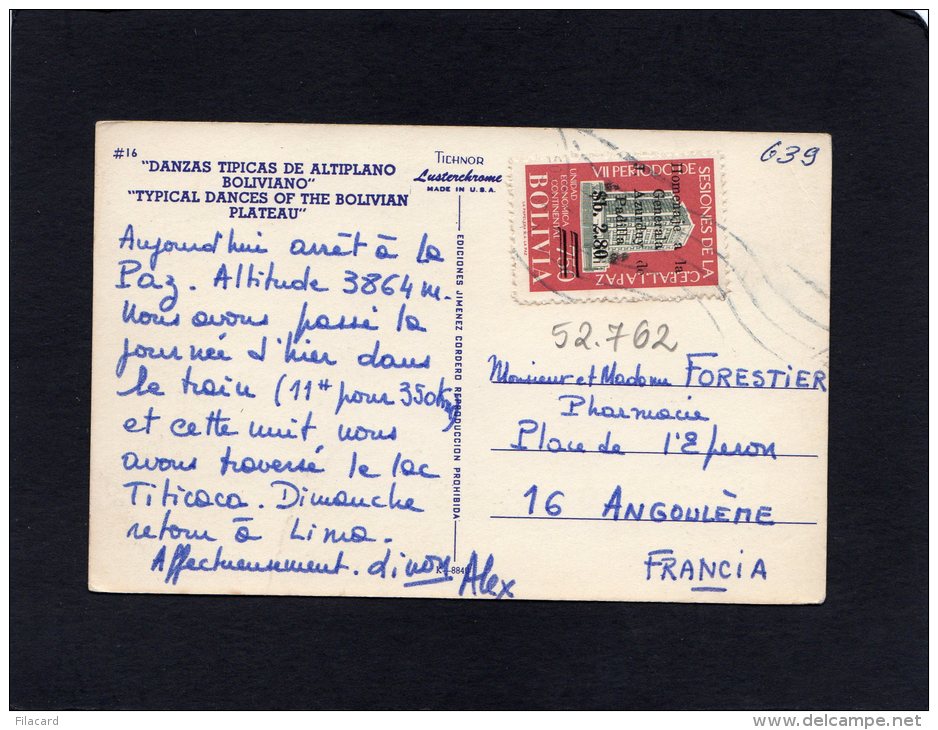 #16
"DANZAS TIPICAS DE ALTIPLANO
BOLIVIANO"
"TYPICAL DANCES OF THE BOLIVIAN
PLATEAU"
TICHNOR
Lusterchrome
MADE IN U.S.A.
639
Aujourd'hui arrêt à La
Paz. Altitude 3864 m.
Nous avons passé la
journée d'hier dans
le train (11H pour 350 km)
et cette nuit nous
avons traversé le lac
Titicaca. Dimanche
retour à Lima.
Affectueusement.
Alex
EDICIONES JIMENEZ CORDERO REPRODUCCION PROHIBIDA
VII PERIODO DE
SESIONES DE LA
C.E.P.A.L. LA PAZ
UNIDAD
ECONOMICA
CONTINENTAL
BOLIVIA
Homenaje a la
Generala
J. Azurduy de
Padilla
$b. 2.80
52.762
Monsieur et Madame FORESTIER
Pharmacie
Place de l'Eperon
16 ANGOULÈME
FRANCIA
Filacard
www.delcampe.net